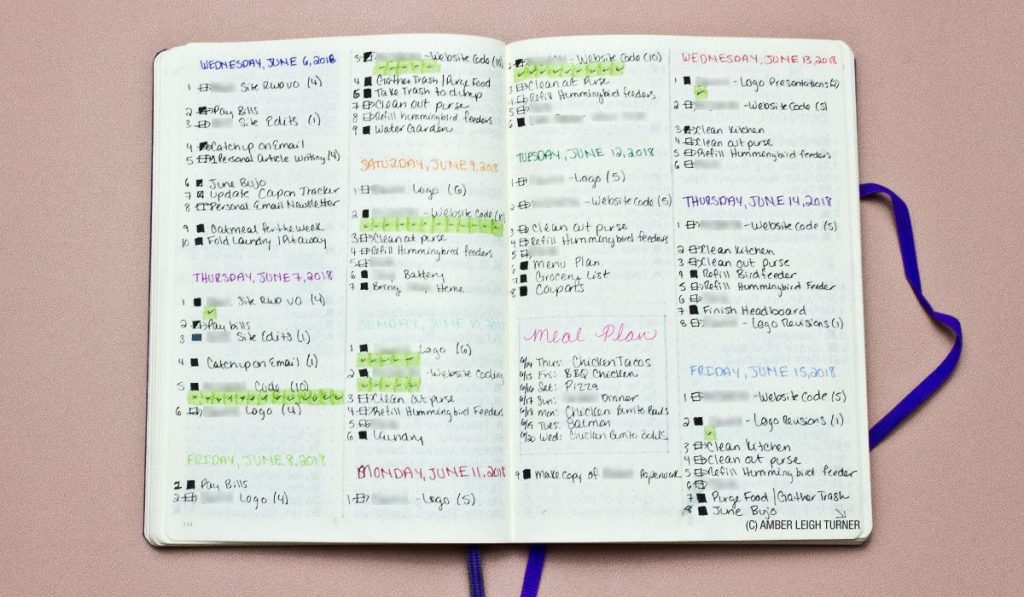 WEDNESDAY, JUNE 6, 2018
1 Site RWD VO (4)
2 Pay Bills
3 Site Edits (1)
4 Catch up on Email
5 Personal Article Writing (4)
6 June Bujo
7 Update Coupon Tracker
8 Personal Email Newsletter
9 Oatmeal for the week
10 Fold Laundry / Put away
THURSDAY, JUNE 7, 2018
1 Site RWD VO (4)
2 Pay bills
3 Site Edits (1)
4 Catch up on Email (1)
5 Code (10)
6 Logo (4)
FRIDAY, JUNE 8, 2018
1 Pay Bills
2 Logo (4)
3 - Website Code (10)
4 Gather Trash / Purge Food
5 Take Trash to dump
7 Clean out purse
8 Refill hummingbird feeders
9 Water Garden
SATURDAY, JUNE 9, 2018
1 Logo (6)
2 - Website Code (10)
3 Clean out purse
4 Refill Hummingbird feeders
5
6 Battery
7 Bring Home
SUNDAY, JUNE 10, 2018
1 Logo (6)
2 - Website Coding
3 Clean out purse
4 Refill Hummingbird Feeders
5
6 Laundry
MONDAY, JUNE 11, 2018
1 - Logo (5)
2 - Website Code (10)
3 Clean out Purse
4 Refill Hummingbird feeders
5
6
TUESDAY, JUNE 12, 2018
1 - Logo (5)
2 - Website Code (5)
3 Clean out purse
4 Refill Hummingbird feeders
5
6 Menu Plan
7 Grocery List
8 Coupons
Meal Plan
6/14 Thurs: Chicken Tacos
6/15 Fri: BBQ Chicken
6/16 Sat: Pizza
6/17 Sun: Dinner
6/18 Mon: Chicken Burrito Bowls
6/19 Tues: Salmon
6/20 Wed: Chicken Burrito Bowls
9 Make Copy of Paperwork
WEDNESDAY, JUNE 13, 2018
1 - Logo Presentations (2)
2 - Website Code (5)
3 Clean Kitchen
4 Clean out purse
5 Refill Hummingbird feeders
6
THURSDAY, JUNE 14, 2018
1 - Website Code (5)
2 Clean Kitchen
3 Clean out purse
9 Refill Birdfeeder
5 Refill Hummingbird Feeder
6
7 Finish Headboard
8 - Logo Revisions (1)
FRIDAY, JUNE 15, 2018
1 - Website Code (5)
2 - Logo Revisions (1)
3 Clean Kitchen
4 Clean out purse
5 Refill Hummingbird feeder
6
7 Purge Food / Gather Trash
8 June Bujo
(C) AMBER LEIGH TURNER